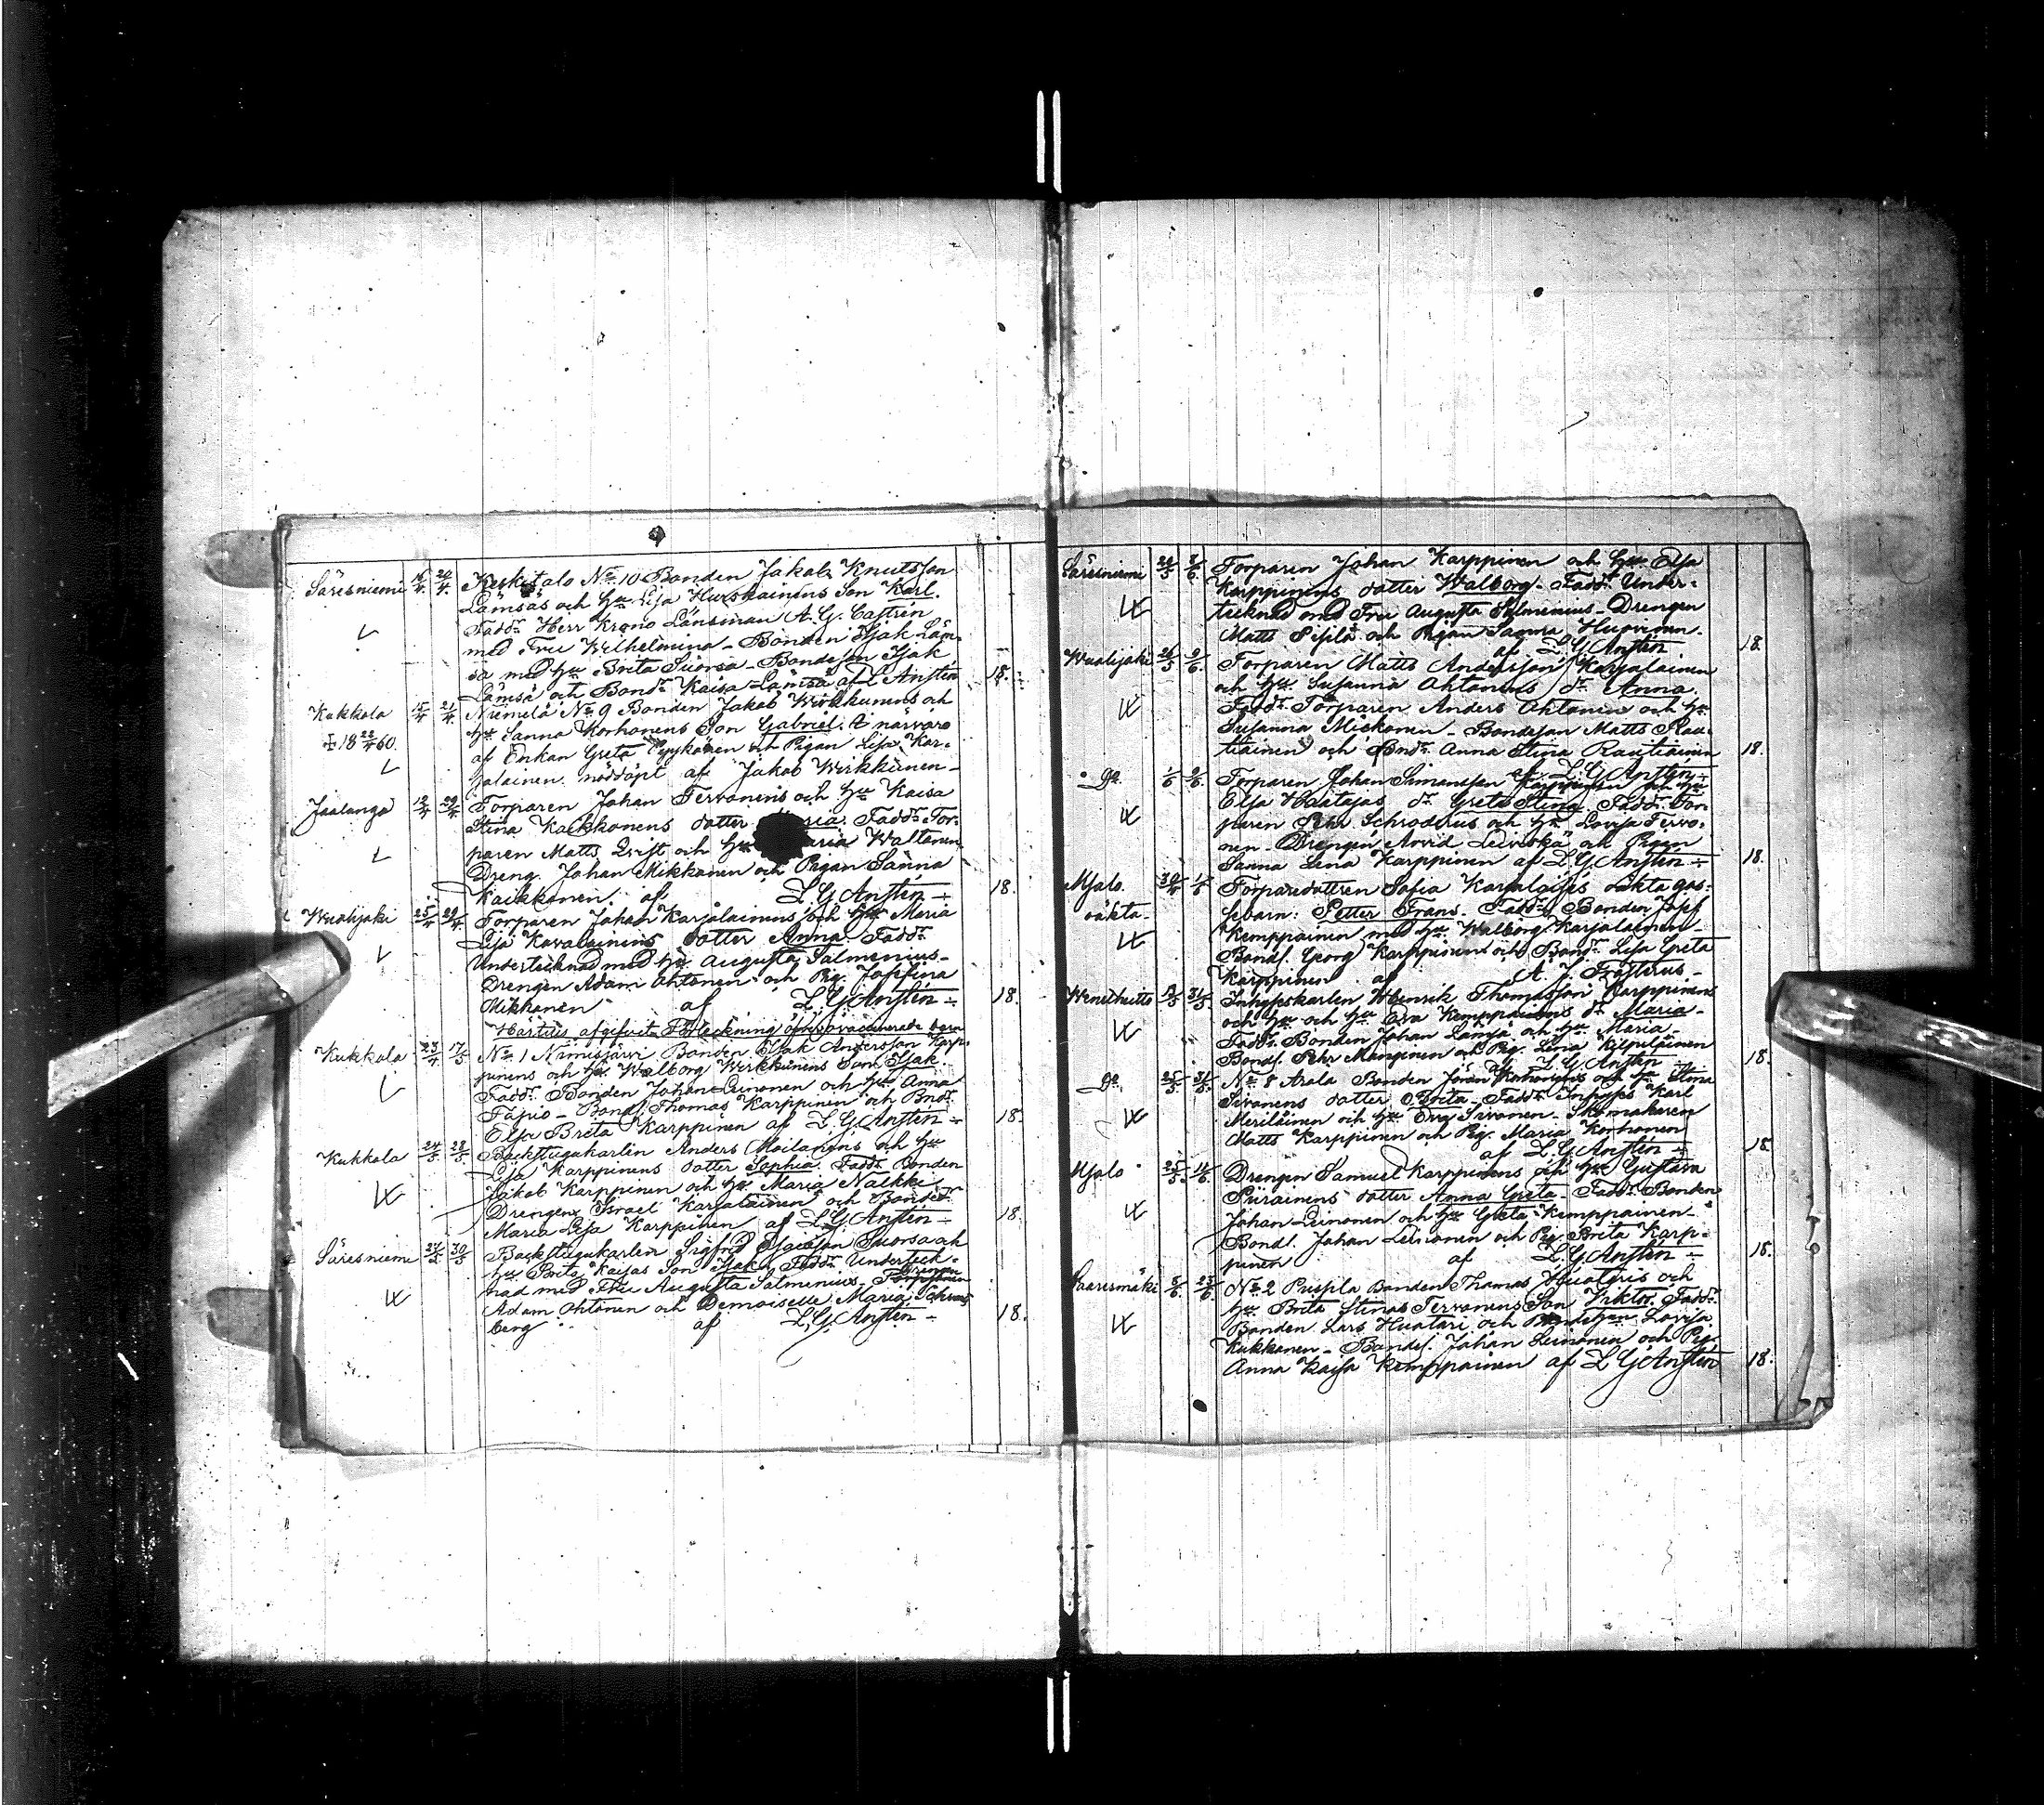 Säresniemi 16/4 24/4. Keskitalo No 10 Bonden Jakob Knutsson
Lämsäs och Hu Lisa Hurskainens Son Karl.
Fadd. Herr Krono Länsman A. G. Castrén
med Fru Wilhelmina - Bonden Isak Läm-
sä med Hu Brita Suorsa - Bondeson Isak
Lämsä och Bondr Kaisa Lämsä af L Anstén 18.
Kukkola 15/4 21/4. Niemelä No 9 Bonden Jakob Wirkkunens och
Hu Sanna Korhonens Son Gabriel. I närvaro
18 60. af Enkan Greta och Pigan Lisa Kar-
jalainen nöddöpt af Jakob Wirkkunen -
Jaalanga 19/4 29/4. Torparen Johan Tervonens och Hu Kaisa
Stina Kaikkonens dotter Fadd. Tor-
paren Matts Qvist och Hu Waltanen
Dreng. Johan Mikkonen och Pigan Sanna
Kaikkonen. af L. G. Anstén 18.
Wuolijoki 25/4 29/4. Torparen Johan Karjalainens och Hu Maria
Lisa Kavalainens dotter Anna. Fadd.
Undertecknad med Hu Augusta Salmenius -
Drengen Adam Ahtonen och Pig. Josefina
Mikkonen af L. G. Anstén 18.
Härtills afgifvit Förteckning öfver ovaccinerade barn
Kukkola 23/4 17/5 No 1 Nimisjärvi Bonden Isak Andersson Karp-
pinens och Hu Walborg Wirkkunens Son Isak.
Fadd. Bonden Johan Leinonen och Hu Anna
Tapio - Bonds. Thomas Karppinen och Bndr
Elsa Brita Karppinen af L. G. Anstén 18.
Kukkola 24/5 28/5. Backstugukarlen Anders Moilanens och Hu
Lisa Karppinens dotter Sophia. Fadd. Bonden
Jakob Karppinen och Hu Maria Naikki
Drengen Israel Karjalainen och Bondedr
Maria Lisa Karppinen af L. G. Anstén 18.
Säresniemi 30/5 Backstugukarlen Sigfrid Isaksson Suorsa och
Hu Brita Kaisas Son Isak. Fadd. Underteck-
nad med Fru Augusta Salmenius - Drengen
Adam Ahtonen och Demoiselle Maria
berg af L. G. Anstén 18.
Säresniemi 8/6. Torparen Johan Karppinen och Hu Elsa
Karppinens dotter Walborg - Fadd. Under-
tecknad med Fru Augusta Salmenius - Drengen
Matts Pispilä och Pigan Sanna Huovinen.
af L. G. Anstén 18.
Wuolijoki 26/5 9/6. Torparen Matts Andersson Karjalainen
och Hu Susanna Ahtonens dr Anna.
Fadd. Torparen Anders Ahtonen och Hu
Susanna Mickonen - Bondeson Matts Rau-
tiainen och Bndr Anna Stina Rautiainen 18.
af L. G. Anstén
Do. 1/6 9/6. Torparen Johan Simonsson Karppinen och Hu
Elsa Haatajas dr Greta Stina. Fadd. Tor-
paren Pehr Schroderus och Hu Lovisa Tervo-
nen - Drengen Arvid Leiviskä och Pigan
Sanna Lena Karppinen af L. G. Anstén 18.
Mjalo. 1/5 Torparedotteren Sofia Karjalainens oäkta gos-
oäkta - sebarn: Petter Frans. Fadd. Bonden Josef
Kemppainen med Hu Walborg Karjalainen -
Bonds. Georg Karppinen och Bondr Lisa Greta
Karppinen af A. J. Frosterus -
Weneheitto 31/5. Inhyseskarlen Henrik Thomasson Karppinens
och Hu och Hu Eva Kemppainens dr Maria -
Fadd. Bonden Johan Lämsä och Hu Maria -
Bonds. Pehr Manginen och Pig. Lena Kilpeläinen
af L. G. Anstén 18.
Do. 25/5 31/5. No 8 Arala Bonden Jöran Korhonens och Hu Stina
Sivonens dotter Brita - Fadd. Inhyses Karl
Meriläinen och Hu Eva Sivonen - Skomakaren
Matts Karppinen och Pig. Maria Korhonen
af L. G. Anstén 18.
Mjalo 25/5. Drengen Samuel Karppinens och Hu Gustava
Piirainens dotter Anna Greta - Fadd. Bonden
Johan Leinonen och Hu Greta Kemppainen -
Bonds. Johan Leinonen och Pig. Brita Karp-
pinen af L. G. Anstén 18.
Saaresmäki 23/6 No 2 Pispila Bonden Thomas Huotaris och
Hu Brita Stinas Tervonens Son Viktor. Fadd.
Bonden Lars Huotari och Lovisa
Kukkonen - Bonds. Johan Leinonen och Pig.
Anna Kaisa Kemppainen af L G Anstén 18.